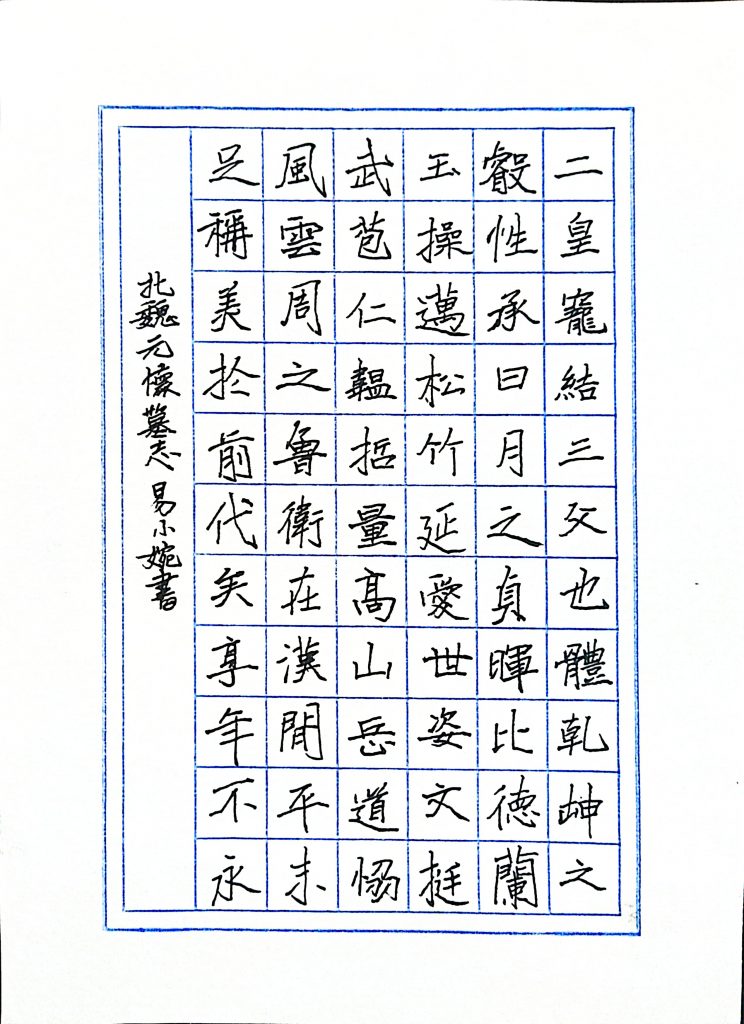 二皇寵結三也體乾坤之
叡性承日月之貞暉比德蘭
玉操邁松竹延愛世姿文挺
武苞仁韞哲量高山岳道恊
風雲周之魯衛在漢閒平未
足稱美於前代矣享年不永
北魏元懷墓志 易小婉書